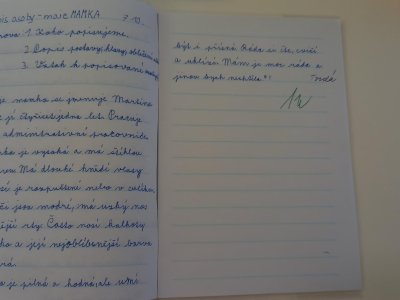 is osoby - moje MAMKA 7.10.
nova: 1. Koho popisujeme.
2. Popis postavy, hlavy, oblečení
3. Vztah k popisované
e mamka se jmenuje Martina
e jí čtyřicetjedna let. Pracuje
administrativní pracovnice
ka je vysoká a má štíhlou
vu. Má dlouhé hnědé vlasy
sí je rozpuštěné nebo v culíku
či jsou modré, má úzký nos
ější rty. Často nosí kalhoty
ko a její nejoblíbenější barva
rá.
a je pilná a hodná, ale umí
být i přísná. Ráda si čte, cvičí
a uklízí. Mám jí moc ráda a
jinou bych nechtěla.